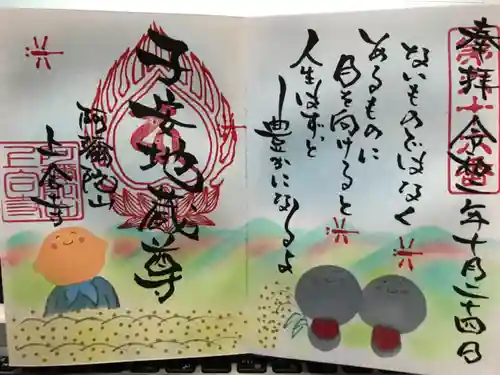 奉拝
年十月二十四日
ないものではなく
あるものに
目を向けると
人生はずっと
豊かになるよ
子安地蔵尊
阿彌陀山